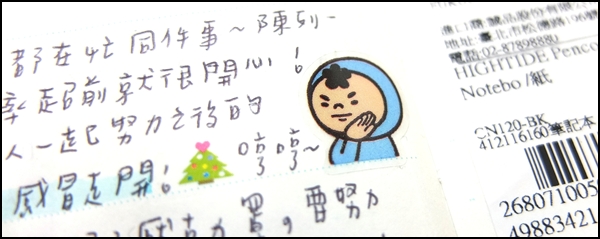 都在忙同件事~陳列~
前就很開心!
人一起努力之後的
感冒走開! 哼哼~
買。要努力
誠品股份有限
地址:臺北市松德路196號
電話:02-87898880
HIGHTIDE Penco
Notebo /紙
CN120-BK
412116160筆記本
268071005
49883421